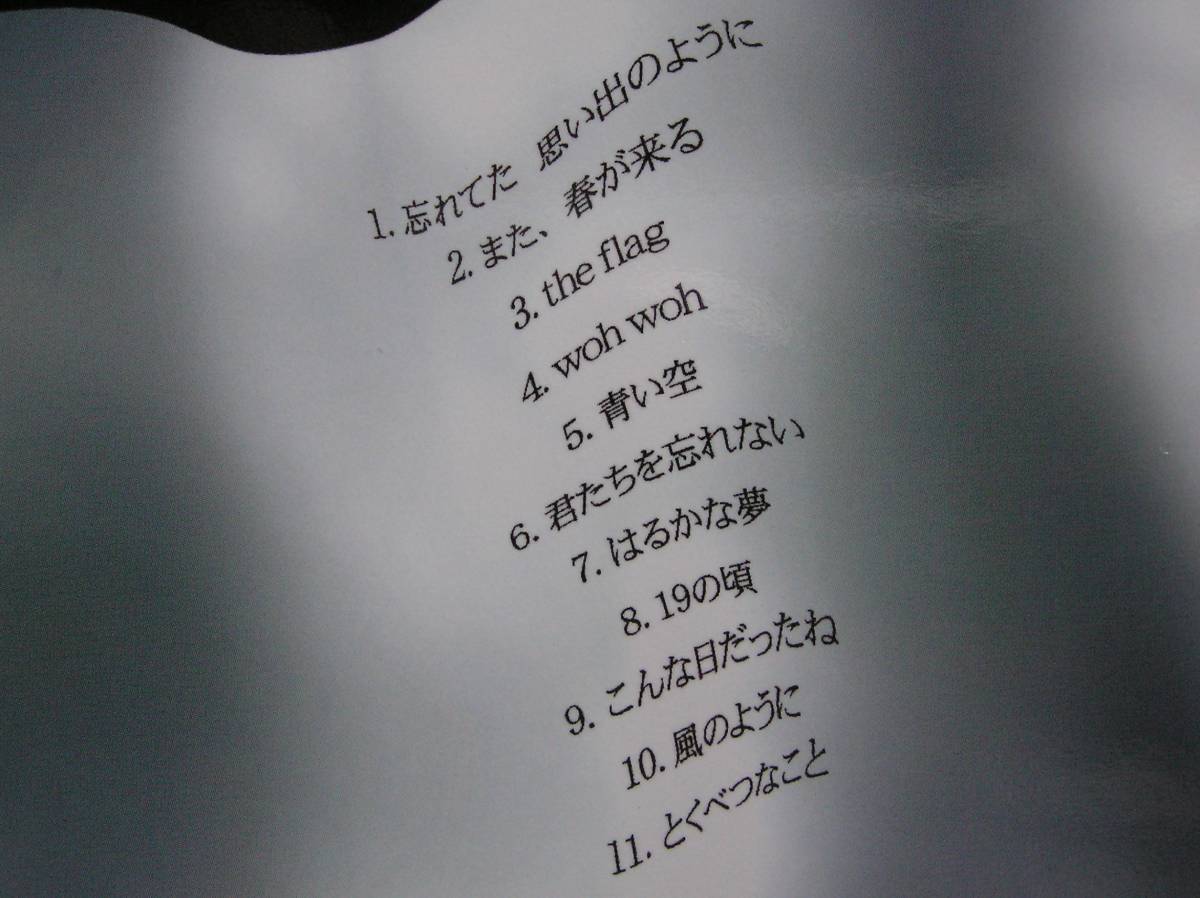 1. 忘れてた 思い出のように
2. また、春が来る
3. the flag
4. woh woh
5. 青い空
6. 君たちを忘れない
7. はるかな夢
8. 19の頃
9. こんな日だったね
10. 風のように
11. とくべつなこと